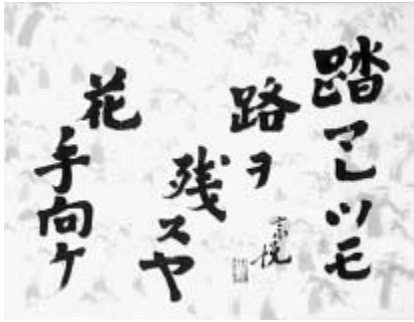 踏マレツモ
路ヲ
残スヤ
花
手向ケ
宗悦